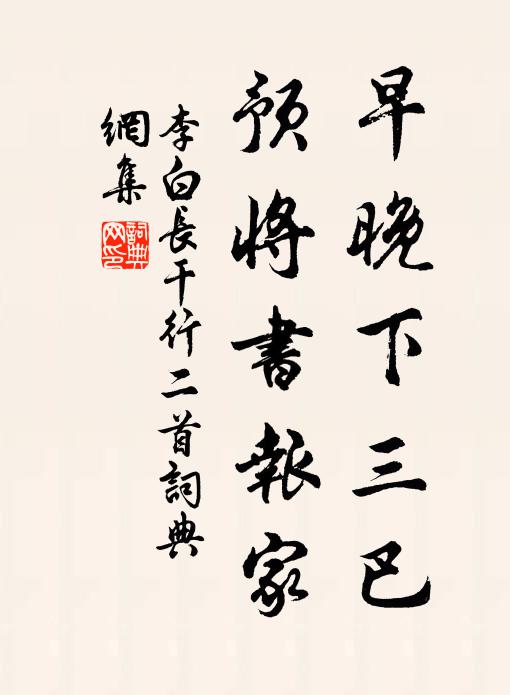 早晚下三巴
預將書報家
李白長干行二首詞典
網集
詞典
网印